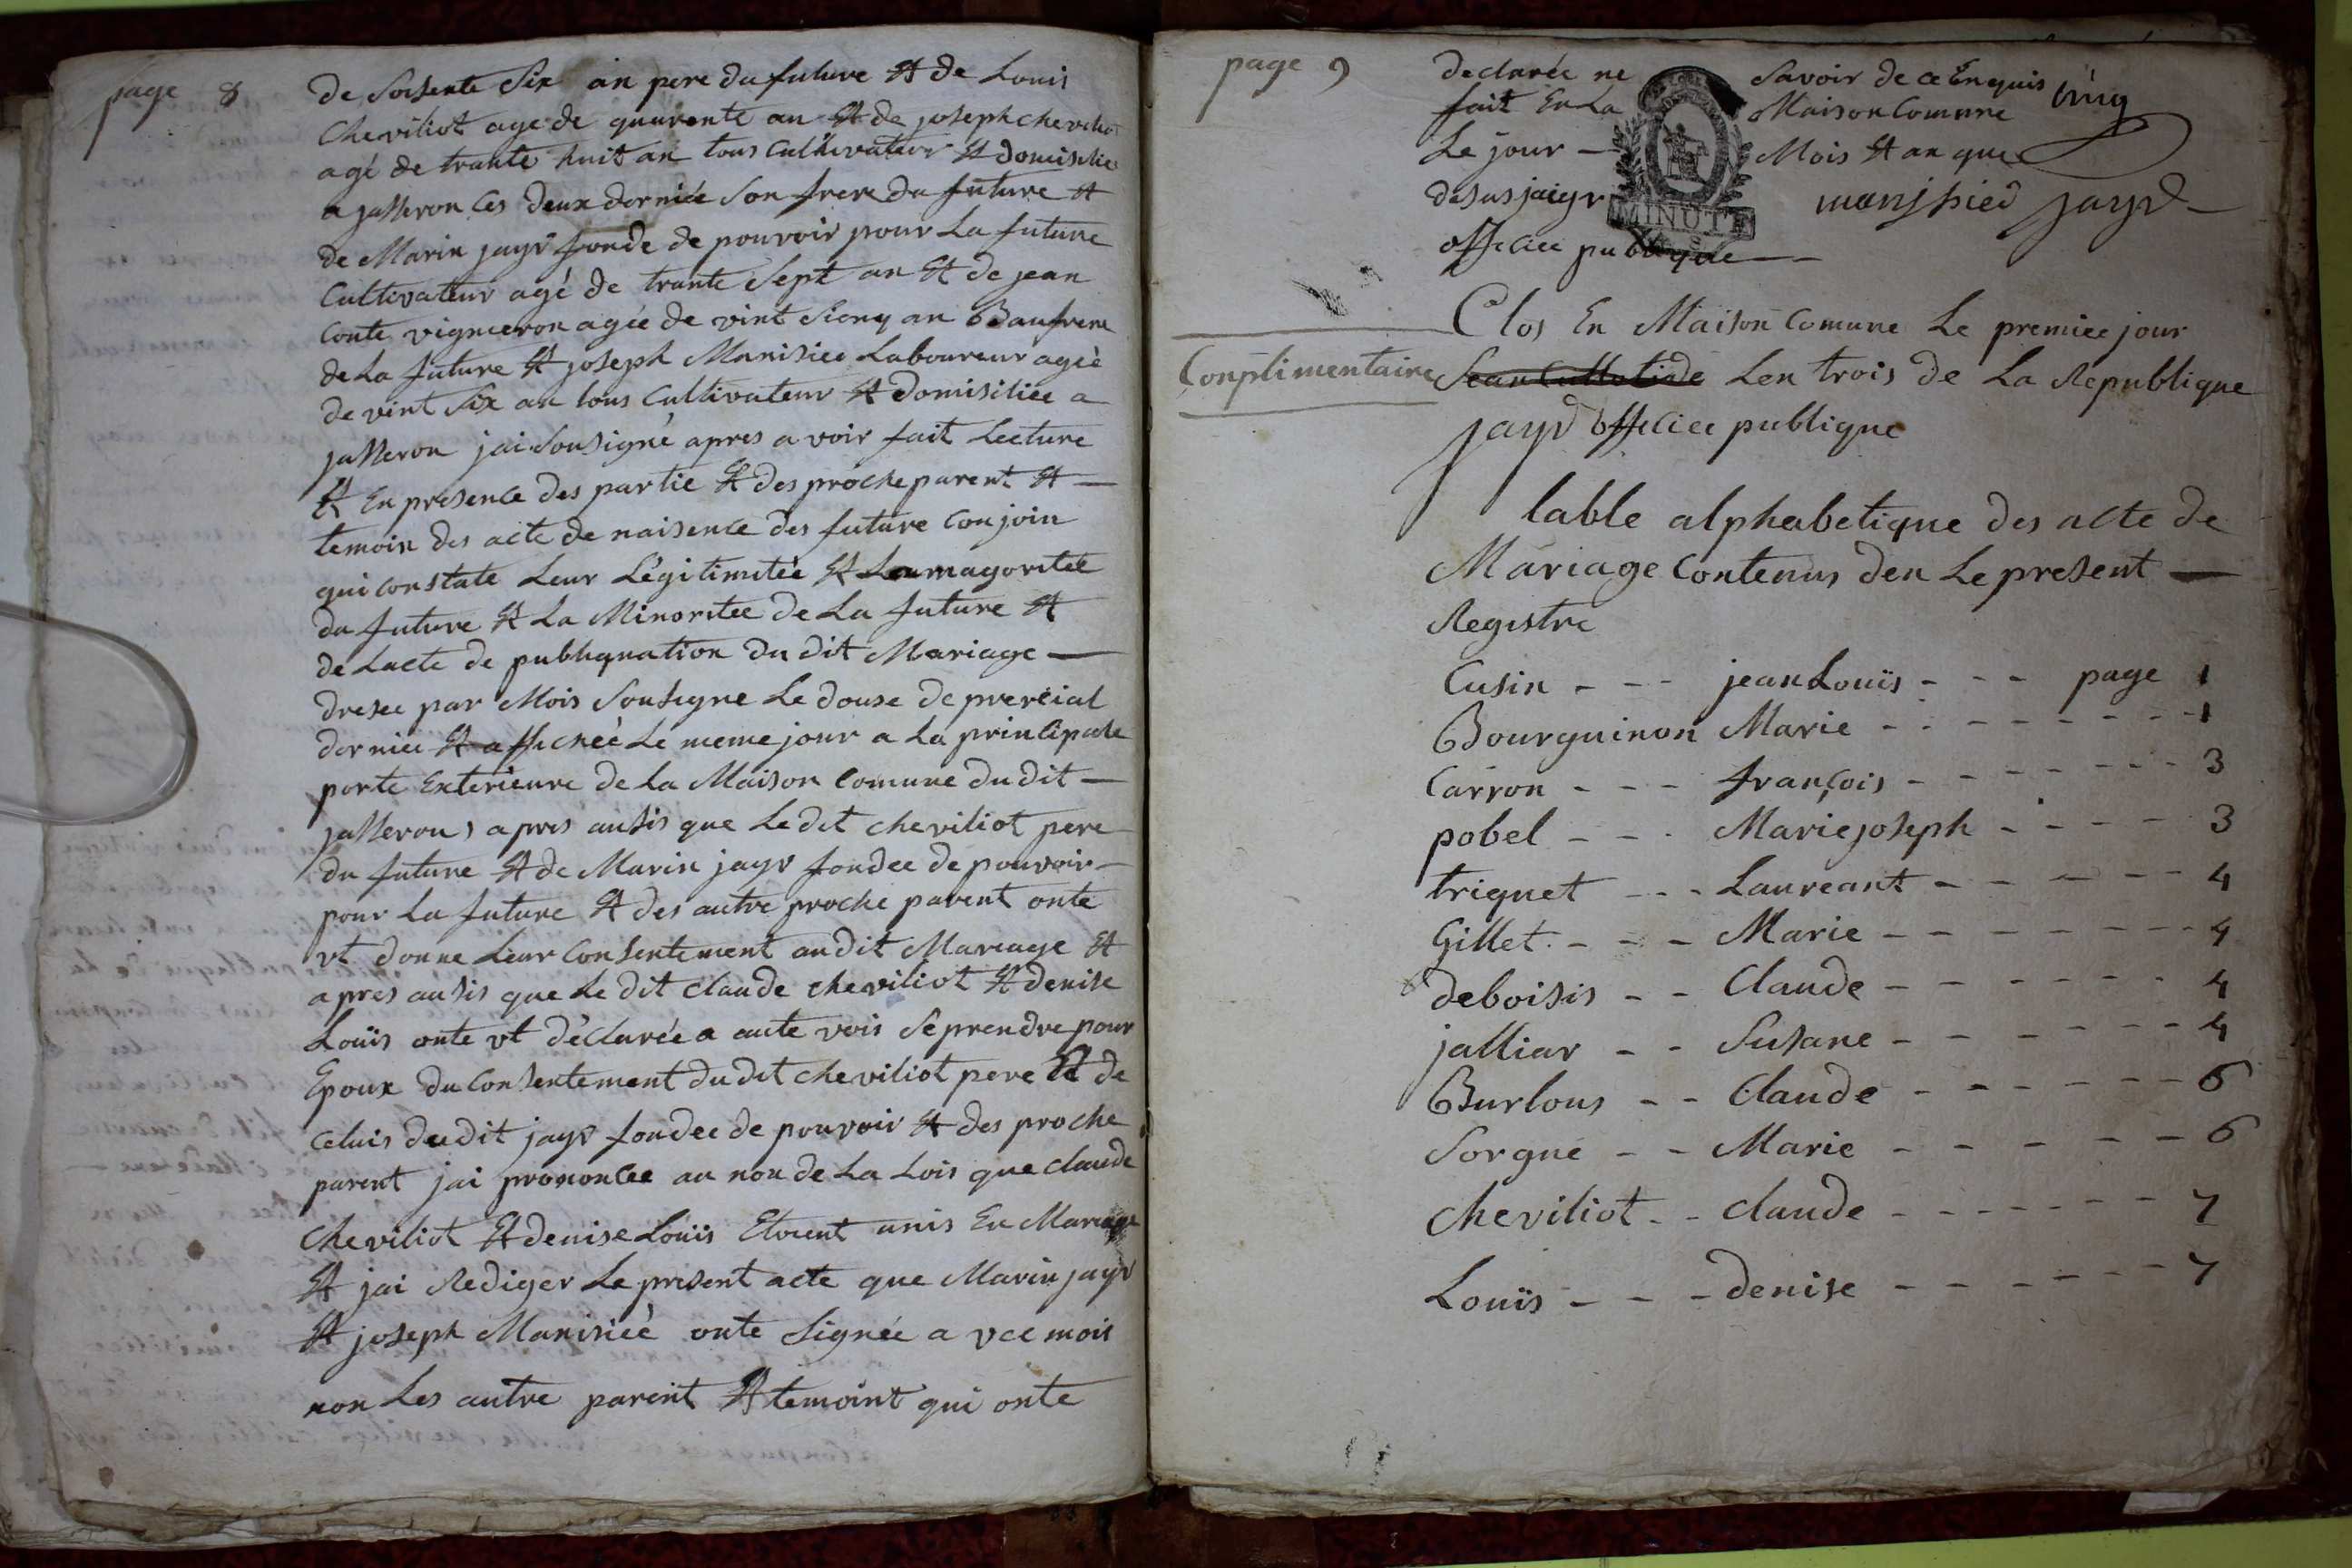 page 8
de Soisente Six an pere du future Et de Louis
Cheviliot age de quarente an Et de joseph chevilio
agé de trante huit an tous Cultivateur Et domisilie
a jasseron les deux derniée son frere du future Et
de Marin jayr fonde de pouvoir pour La future
Cultivateur agé de trante Sept an Et de jean
Conte vigneron agée de vint Sienq an Baufrere
de La future Et joseph Manisiee Laboureur ageé
de vint Six an tous Cultivateur Et domisiliée a
jasseron jai Sousigné apres a voir fait Lecture
Et En presence des partie Et des proche parent Et
temoin des acte de naisence des future Conjoin
qui Constate Leur Légitimitée Et La magoritée
du future Et La Minoritée de La future Et
de Lacte de publiquation du dit Mariage
dresee par Mois Sousigne Le douse de prereial
dernier Et affichée Le meme jour a La principale
porte Exterieure de La Maison Comune du dit
jasseron, apres ausis que Le dit cheviliot pere
du future Et de Marin jayr fondee de pouvoir
pour La future Et des autre proche parent onte
vt donne Leur Consentement audit Mariage Et
apres ausis que Le dit Claude cheviliot Et denise
Louïs onte vt déClarée a aute vois Se prendre pour
Epoux du Consentement du dit cheviliot pere Et de
Celuis dudit jayr fondee de pouvoir Et des proche
parent jai prononcee au non de La Lois que Claude
Cheviliot Et denise Louïs Etoient unis En Mariage
Et jai Rediger Le present acte que Marin jayr
Et joseph Manisieé onte Signée a vce mois
non Les autre parent Et temoint qui onte
page 9
declarée ne Savoir de ce Enquis
fait En La Maison Comune
Le jour Mois Et an que
desus jaiyr
MINUTE
jayr
officiee publique
Clos En Maison Comune Le premiee jour
Conplimentaire Len trois de La Republique
jayr officiee publique
table alphabetique des acte de
Mariage Contenus den Le present
Registre
Cusin - - - jean Louïs - - - page 1
Bourguinon Marie - - - - - - - - 1
Carron - - - françois - - - - - - - 3
pobel - - - Marie joseph - - - - - 3
triquet - - - Laureant - - - - - - 4
Gillet - - - Marie - - - - - - - - 4
deboisis - - Claude - - - - - - 4
jalliar - - Susane - - - - - - - 4
Burlous - - Claude - - - - - - 6
Sorgue - - Marie - - - - - - 6
Cheviliot - - Claude - - - - - - - 7
Louïs - - - denise - - - - - - - 7